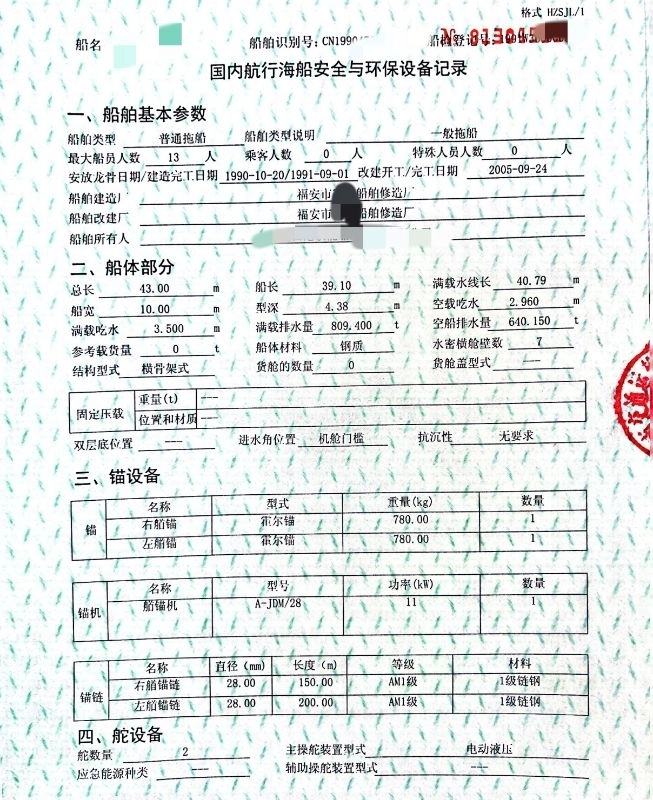 格式 HZSJL/1
船名 船舶识别号:CN1990 船检登记号:
国内航行海船安全与环保设备记录
一、船舶基本参数
船舶类型 普通拖船 船舶类型说明 一般拖船
最大船员人数 13 人 乘客人数 0 人 特殊人员人数 0 人
安放龙骨日期/建造完工日期 1990-10-20/1991-09-01 改建开工/完工日期 2005-09-24
船舶建造厂 福安市 船舶修造厂
船舶改建厂 福安市 船舶修造厂
船舶所有人
二、船体部分
总长 43.00 m 船长 39.10 m 满载水线长 40.79 m
船宽 10.00 m 型深 4.38 m 空载吃水 2.960 m
满载吃水 3.500 m 满载排水量 809.400 t 空船排水量 640.150 t
参考载货量 0 t 船体材料 钢质 水密横舱壁数 7
结构型式 横骨架式 货舱的数量 0 货舱盖型式 ---
固定压载 重量(t) ---
位置和材质 ---
双层底位置 --- 进水角位置 机舱门槛 抗沉性 无要求
三、锚设备
锚 名称 型式 重量(kg) 数量
右船锚 霍尔锚 780.00 1
左船锚 霍尔锚 780.00 1
锚机 名称 型号 功率(kW) 数量
船锚机 A-JDM/28 11 1
锚链 名称 直径(mm) 长度(m) 等级 材料
右船锚链 28.00 150.00 AM1级 1级链钢
左船锚链 28.00 200.00 AM1级 1级链钢
四、舵设备
舵数量 2 主操舵装置型式 电动液压
应急能源种类 --- 辅助操舵装置型式 ---